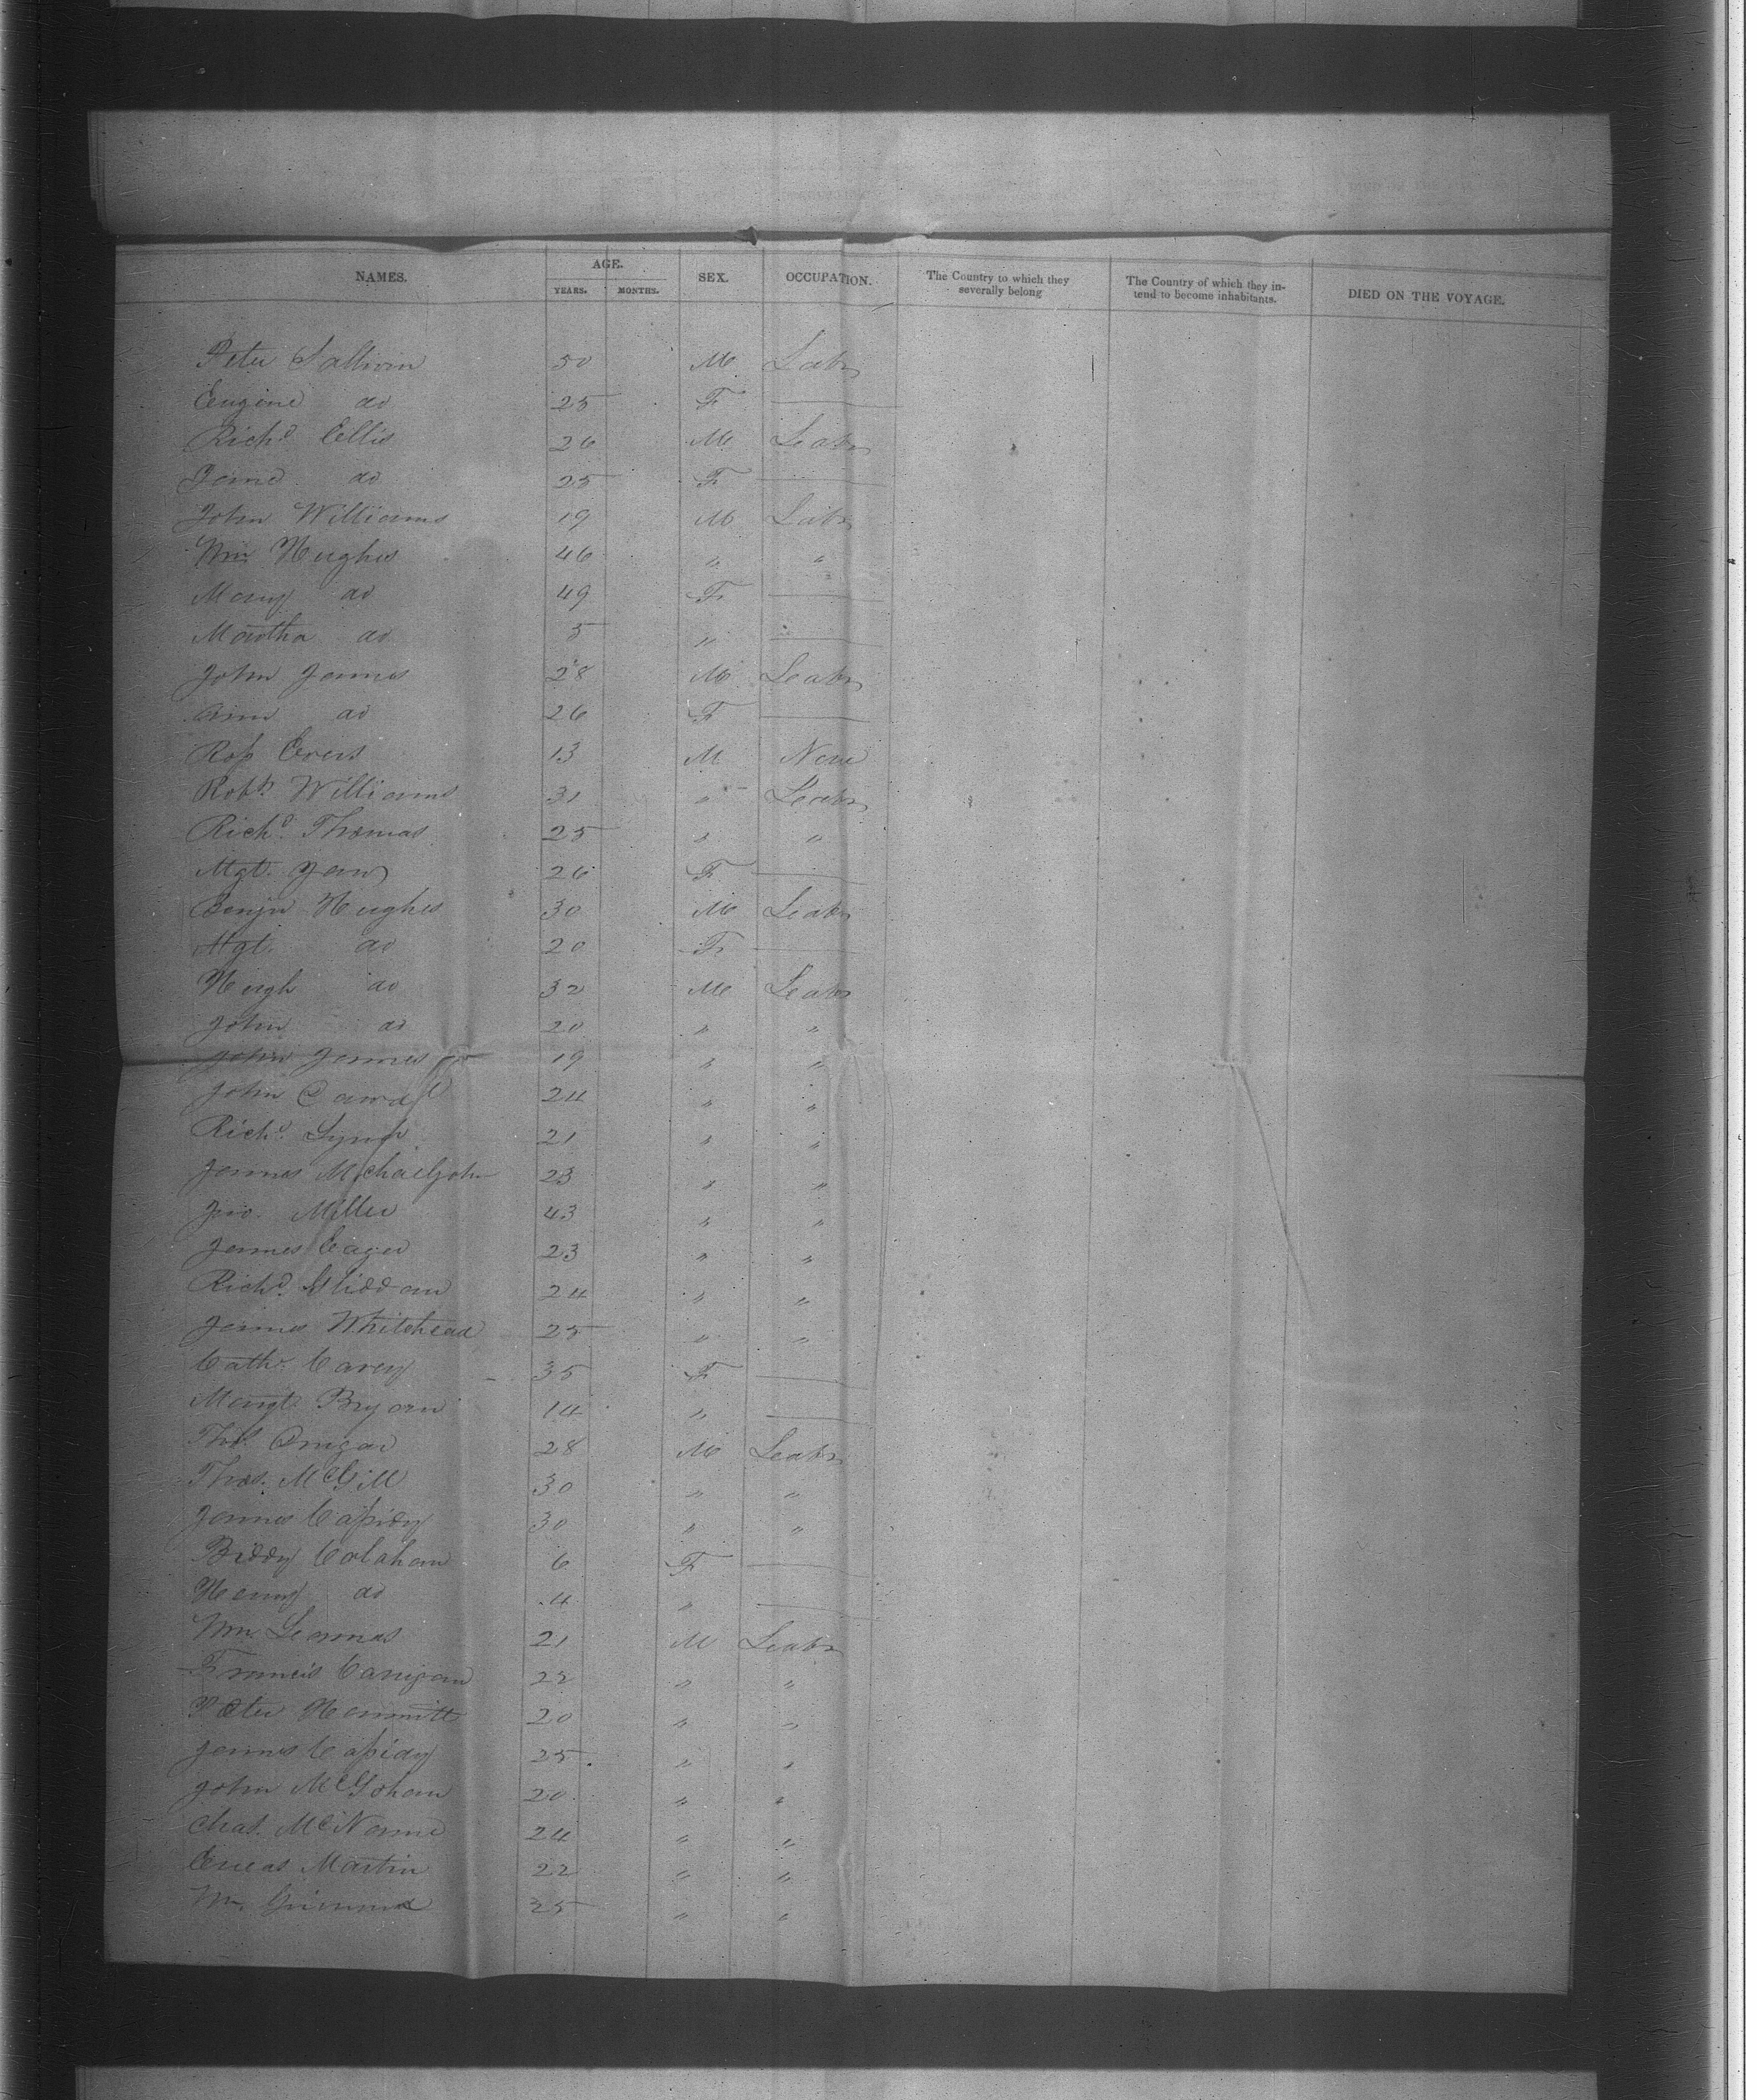 NAMES. AGE. SEX. OCCUPATION. The Country to which they severally belong The Country of which they intend to become inhabitants. DIED ON THE VOYAGE.
YEARS. MONTHS.
Peter Sullivan 50 M Labr
Eugene do 25 F —
Richd Ellis 26 M Labr
Jane do 25 F —
John Williams 19 M Labr
Wm Hughes 46 " "
Mary do 49 F —
Martha do 5 " —
John James 28 M Labr
Ann do 26 F —
Evens 13 M None
Robt Williams 31 " Labr
Richd Thomas 25 " "
Mgt. 26 F —
Benjn Hughes 30 M Labr
Mgt. do 20 F —
Hugh do 32 M Labr
John do 20 " "
John James 19 " "
John 24 " "
Richd Lynch 21 " "
James 23 " "
Jno. Miller 43 " "
James Eager 23 " "
Richd Gliddan 24 " "
James Whitehead 25 " "
Cathe. Carey 35 F —
Margt Bryan 14 " —
Thos 28 M Labr
Thos. McGill 30 " "
James Cassidy 30 " "
Biddy Calahan 6 F —
do 4 " —
Wm. 21 M Labr
Francis Carrigan 22 " "
Peter 20 " "
James Cassidy 25 " "
John McGohan 20 " "
Chas. 24 " "
Eneas Martin 22 " "
Wm 25 " "